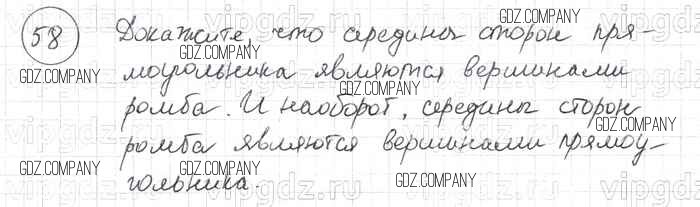 58 Докажите, что середины сторон пря-
моугольника являются вершинами
ромба. И наоборот, середины сторон
ромба являются вершинами прямоу-
гольника.
GDZ.COMPANY
GDZ.COMPANY
GDZ.COMPANY
GDZ.COMPANY
GDZ.COMPANY
GDZ.COMPANY
GDZ.COMPANY
GDZ.COMPANY
GDZ.COMPANY
vipgdz.ru